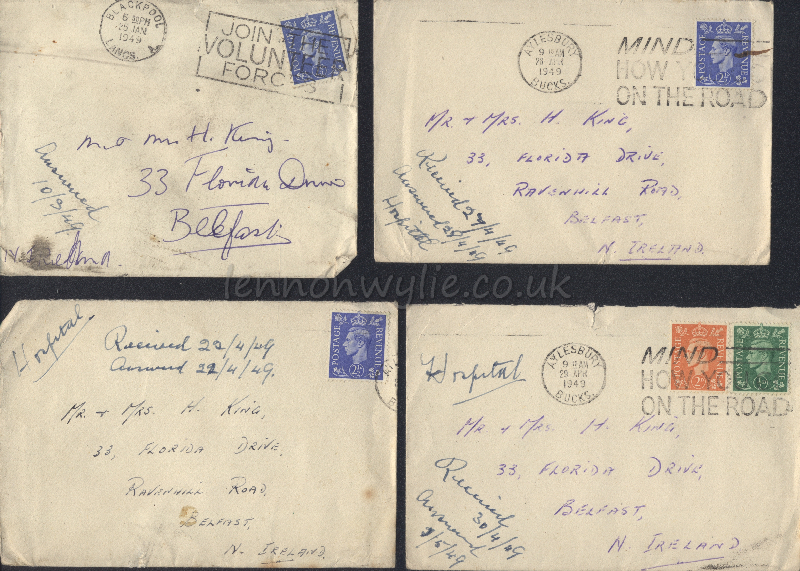 BLACKPOOL
6 30PM
25 JAN.
1949
LANCS.
JOIN
VOLUN
FORC
POSTAGE REVENUE
2½
Mr & Mrs H. King.
33 Florida Drive
Belfast
N. Ireland.
Answered
10/3/49
AYLESBURY
9 AM
26 APR
1949
BUCKS.
MIND
HOW Y
ON THE ROAD
POSTAGE REVENUE
2½
MR. + MRS. H. KING,
33, FLORIDA DRIVE,
RAVENHILL ROAD,
BELFAST,
N. IRELAND.
Received 27/4/49
Answered 28/4/49
Hospital
lennonwylie.co.uk
Hospital.
Received 22/4/49
Answered 22/4/49.
POSTAGE REVENUE
2½
MR. + MRS. H. KING,
33, FLORIDA DRIVE.
RAVENHILL ROAD,
BELFAST,
N. IRELAND.
Hospital
AYLESBURY
9 AM
29 APR
1949
BUCKS.
MIND
HO
ON THE ROAD
POSTAGE REVENUE
POSTAGE REVENUE
MR. + MRS. H. KING,
33, FLORIDA DRIVE,
BELFAST,
N. IRELAND
Received
30/4/49
Answered